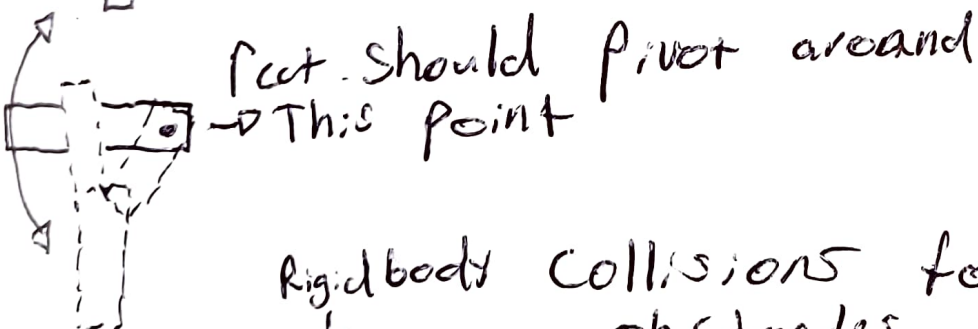 Feet should Pivot areand
→ This Point
Rigidbody Collisions fo
obstacles